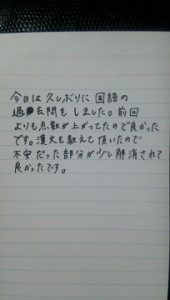 今日は久しぶりに国語の
過去問をしました。前回
よりも点数が上がってたので良かった
です。漢文を教えて頂いたので
不安だった部分が少し解消されて
良かったです。